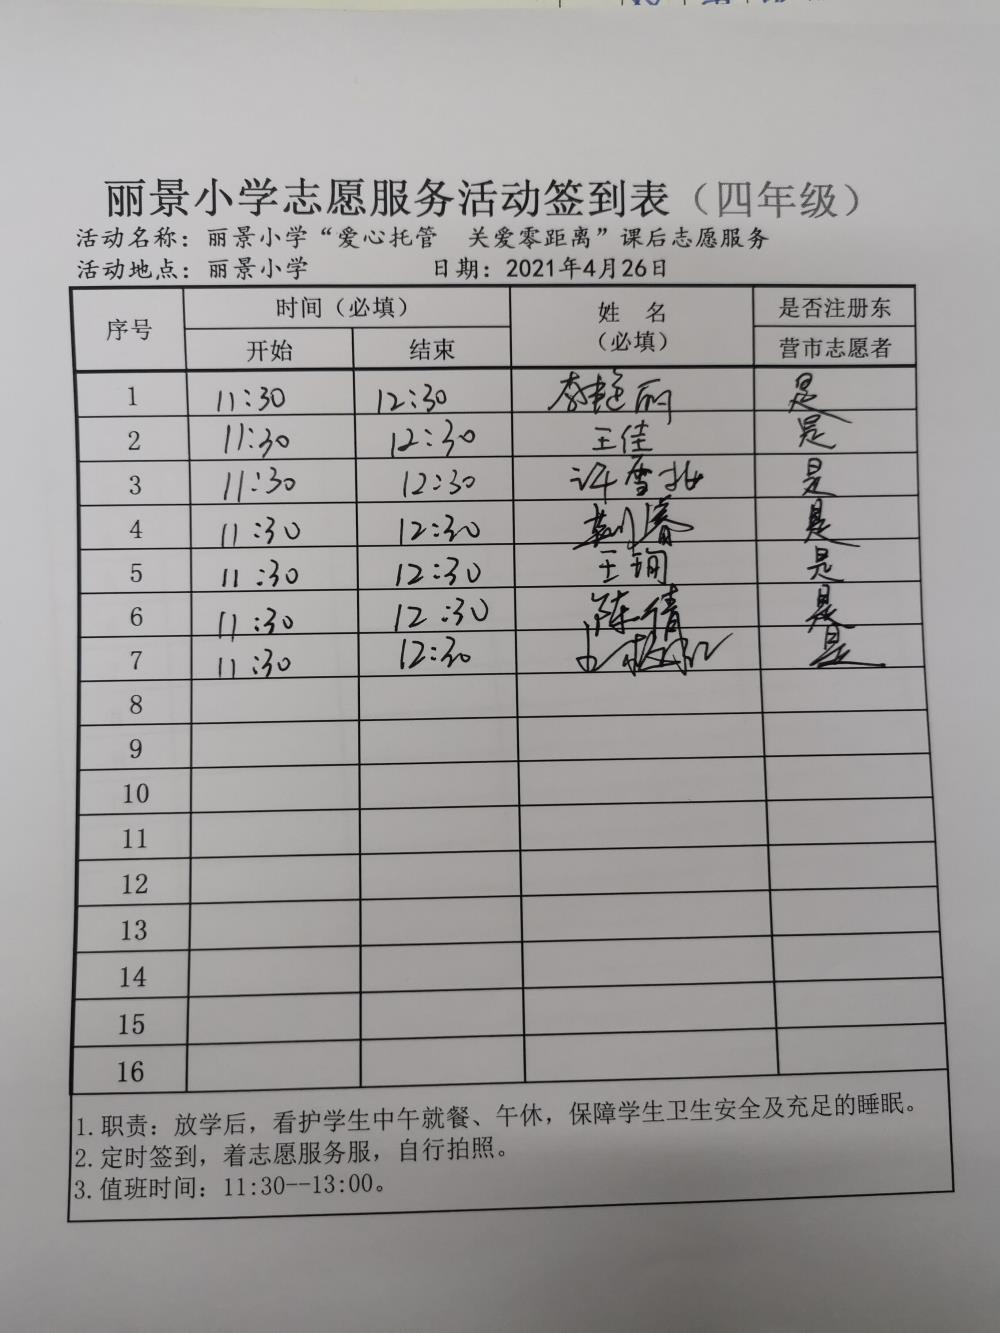 丽景小学志愿服务活动签到表（四年级）
活动名称：丽景小学“爱心托管　关爱零距离”课后志愿服务
活动地点：丽景小学　日期：2021年4月26日
序号　时间（必填）　姓　名（必填）　是否注册东营市志愿者
开始　结束
1　11:30　12:30　李艳丽　是
2　11:30　12:30　王佳　是
3　11:30　12:30　许雪　是
4　11:30　12:30　是
5　11:30　12:30　王珣　是
6　11:30　12:30　陈倩　是
7　11:30　12:30　是
8
9
10
11
12
13
14
15
16
1.职责：放学后，看护学生中午就餐、午休，保障学生卫生安全及充足的睡眠。
2.定时签到，着志愿服务服，自行拍照。
3.值班时间：11:30--13:00。